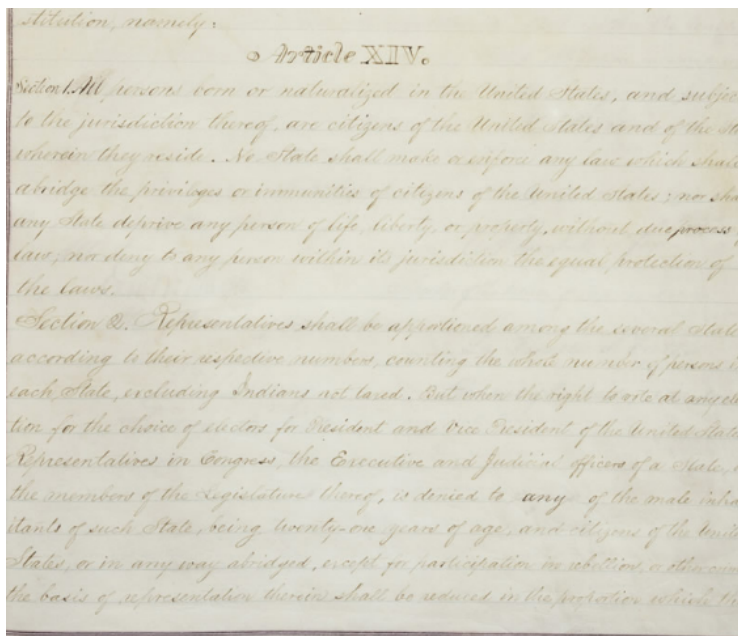 stitution, namely:
Article XIV.
Section 1. All persons born or naturalized in the United States, and subjec
to the jurisdiction thereof, are citizens of the United States and of the Sta
wherein they reside. No State shall make or enforce any law which shall
abridge the privileges or immunities of citizens of the United States; nor sha
any State deprive any person of life, liberty, or property, without due process
law; nor deny to any person within its jurisdiction the equal protection of
the laws.
Section 2. Representatives shall be apportioned among the several State
according to their respective numbers, counting the whole number of persons i
each State, excluding Indians not taxed. But when the right to vote at any elec
tion for the choice of electors for President and Vice President of the United State
Representatives in Congress, the Executive and Judicial officers of a State,
the members of the Legislature thereof, is denied to any of the male inhab
itants of such State, being twenty-one years of age, and citizens of the Unite
States, or in any way abridged, except for participation in rebellion, or other crim
the basis of representation therein shall be reduced in the proportion which th